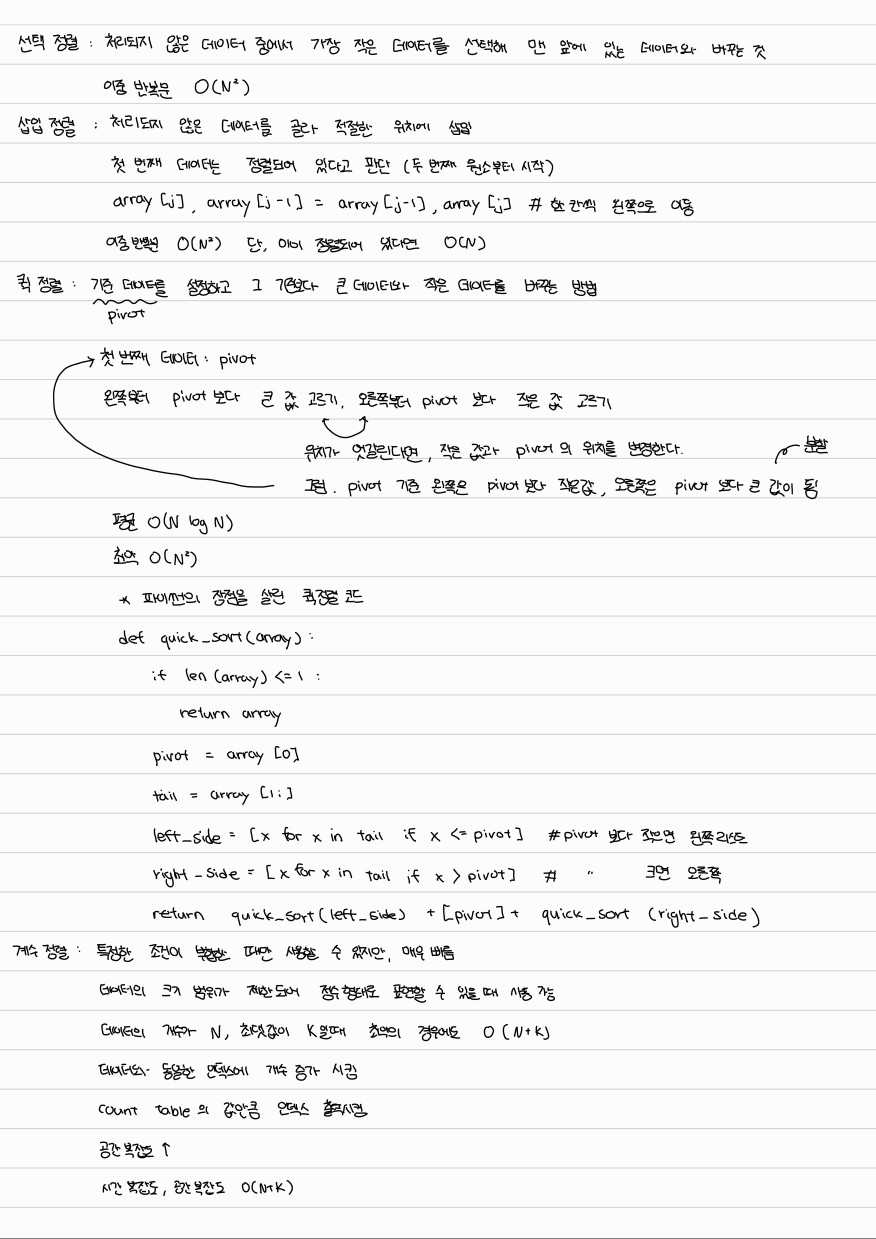 선택 정렬 : 처리되지 않은 데이터 중에서 가장 작은 데이터를 선택해 맨 앞에 있는 데이터와 바꾸는 것
이중 반복문 O(N²)
삽입 정렬 : 처리되지 않은 데이터를 골라 적절한 위치에 삽입
첫 번째 데이터는 정렬되어 있다고 판단 (두 번째 원소부터 시작)
array [j], array [j-1] = array [j-1], array [j] # 한 칸씩 왼쪽으로 이동
이중 반복문 O(N²) 단, 이미 정렬되어 있다면 O(N)
퀵 정렬 : 기준 데이터를 설정하고 그 기준보다 큰 데이터와 작은 데이터를 바꾸는 방법
pivot
첫 번째 데이터 : pivot
왼쪽부터 pivot 보다 큰 값 고르기, 오른쪽부터 pivot 보다 작은 값 고르기
위치가 엇갈린다면, 작은 값과 pivot 의 위치를 변경한다.
분할
그럼. pivot 기준 왼쪽은 pivot 보다 작은값, 오른쪽은 pivot 보다 큰 값이 됨
평균 O(N log N)
최악 O(N²)
* 파이썬의 장점을 살린 퀵정렬 코드
def quick_sort(array) :
if len (array) <= 1 :
return array
pivot = array [0]
tail = array [1:]
left_side = [x for x in tail if x <= pivot] # pivot 보다 작으면 왼쪽 리스트
right_side = [x for x in tail if x > pivot] # " 크면 오른쪽
return quick_sort(left_side) + [pivot] + quick_sort (right_side)
계수 정렬 : 특정한 조건이 부합할 때만 사용할 수 있지만, 매우 빠름
데이터의 크기 범위가 제한되어 정수형태로 표현할 수 있을 때 사용 가능
데이터의 개수가 N, 최댓값이 K일때 최악의 경우에도 O(N+K)
데이터와 동일한 인덱스에 개수 증가 시킴
count table 의 값만큼 인덱스 출력시킴
공간 복잡도 ↑
시간 복잡도, 공간 복잡도 O(N+K)